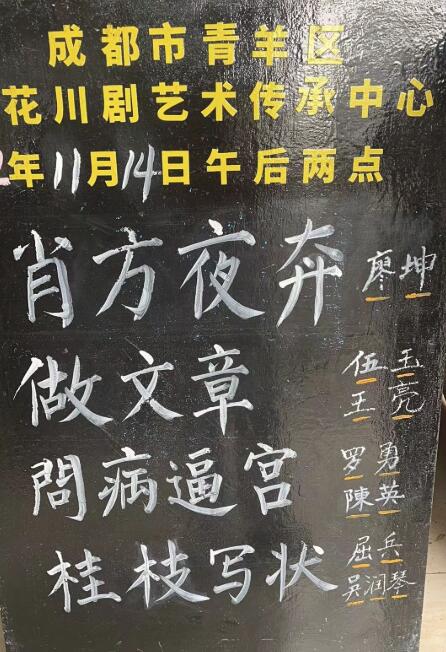 成都市青羊区
花川剧艺术传承中心
2年11月14日午后两点
肖方夜奔 廖坤
做文章 伍玉
王亮
問病逼宫 罗勇
陳英
桂枝写状 屈兵
吴润琴